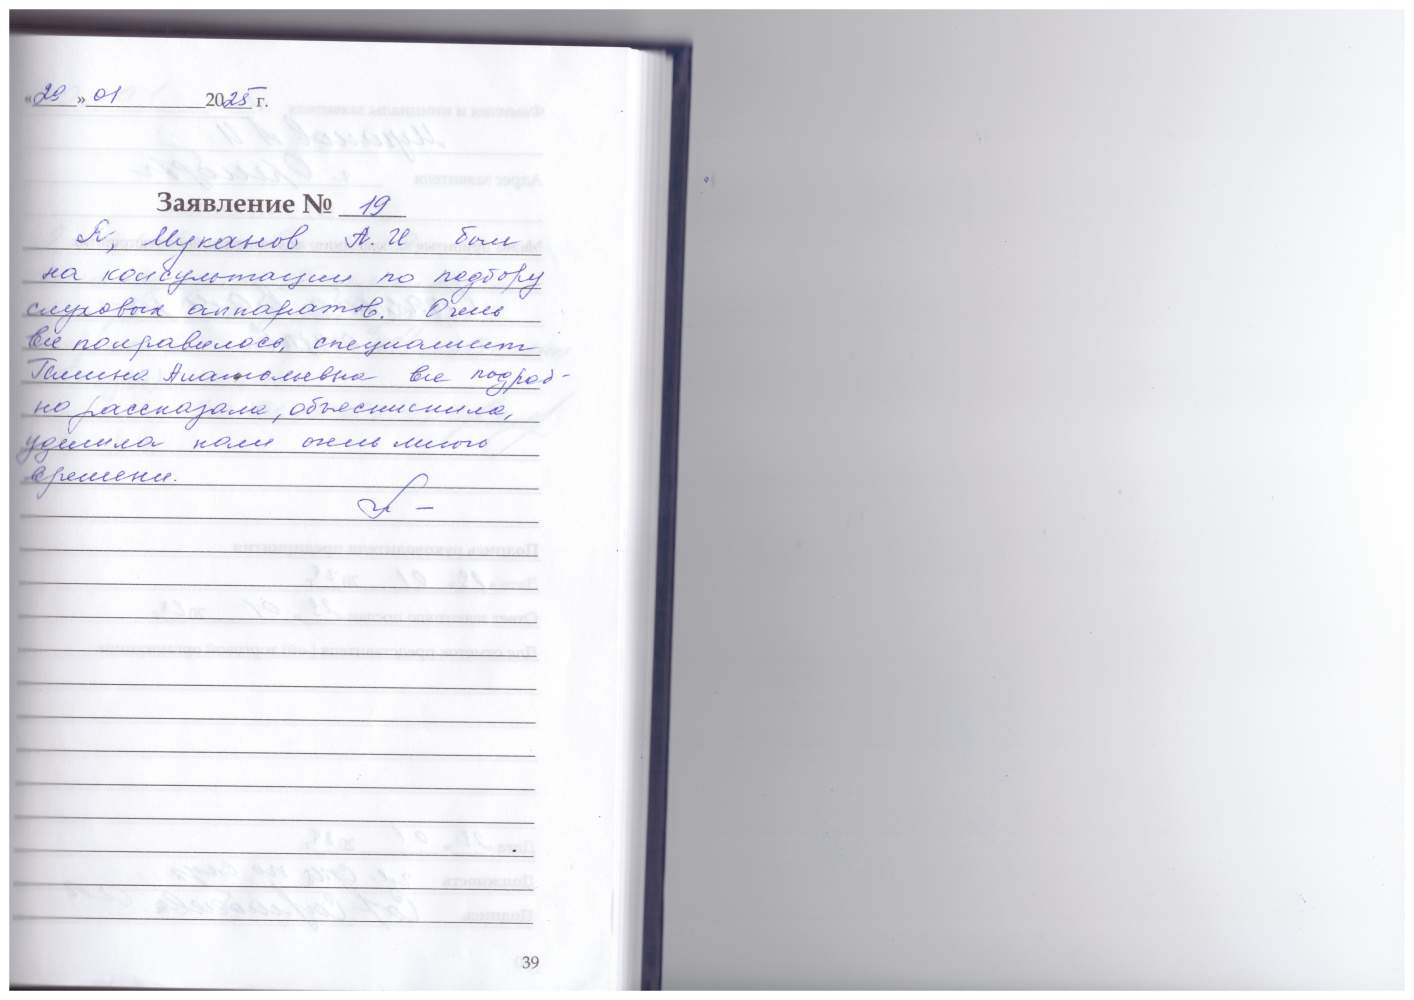 «29» 01 2025 г.
Заявление № 19
Я, Муканов А. И был
на консультации по подбору
слуховых аппаратов. Очень
все понравилось, специалист
Галина Анатольевна все подроб-
но рассказала, объяснила,
уделила нам очень много
времени.
39